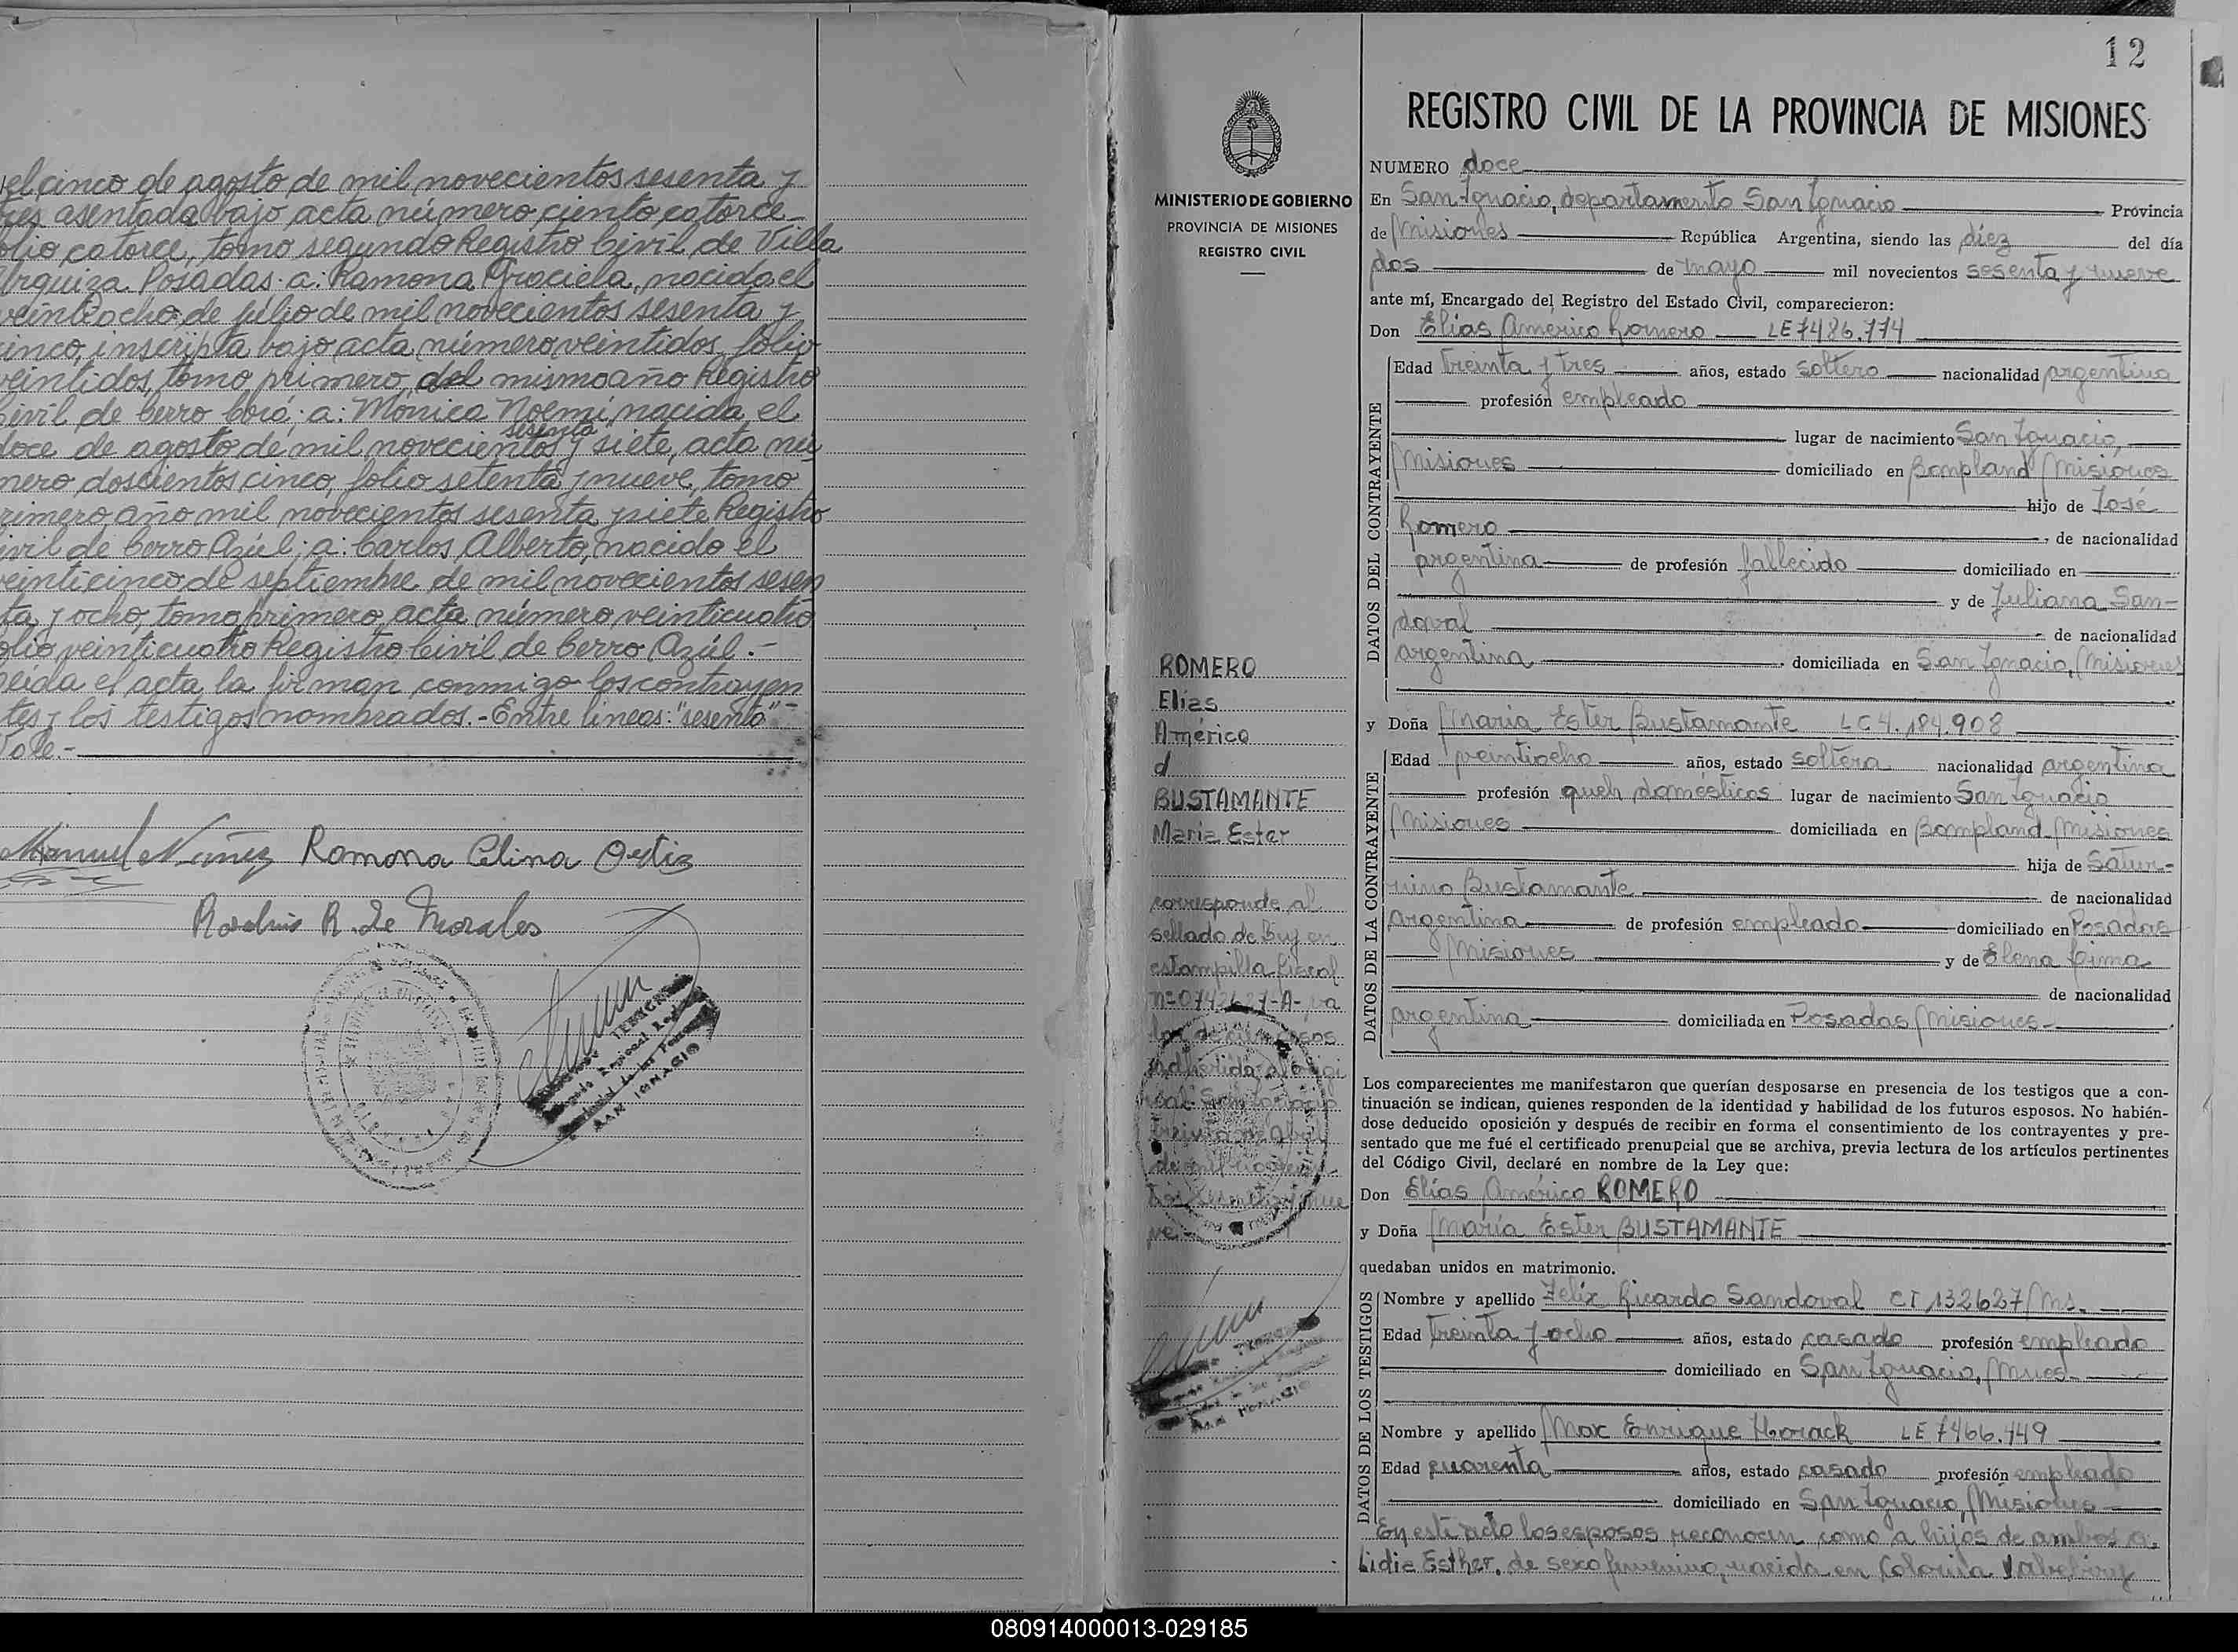 el cinco de agosto de mil novecientos sesenta y
tres asentada bajo acta número ciento catorce
folio catorce, tomo segundo Registro Civil de Villa
Urquiza Posadas: a: Ramona Graciela, nacida el
veintiocho de julio de mil novecientos sesenta y
cinco, inscripta bajo acta número veintidos, folio
veintidos, tomo primero, del mismo año Registro
Civil de Cerro Corá; a: Mónica Noemí, nacida el
sesenta
doce de agosto de mil novecientos y siete, acta nú
mero doscientos cinco, folio setenta y nueve, tomo
primero, año mil novecientos sesenta y siete Registro
Civil de Cerro Azúl; a: Carlos Alberto, nacido el
veinticinco de septiembre de mil novecientos sesen
ta y ocho, tomo primero, acta número veinticuatro
folio veinticuatro Registro Civil de Cerro Azúl.-
Leída el acta, la firman conmigo los contrayen
tes y los testigos nombrados.- Entre líneas: "sesenta"-
Vale.-
Manuel Núñez Ramona Celina Ortiz
R. de Morales
SAN IGNACIO
12
REGISTRO CIVIL DE LA PROVINCIA DE MISIONES
MINISTERIO DE GOBIERNO
PROVINCIA DE MISIONES
REGISTRO CIVIL
ROMERO
Elías
Américo
d
BUSTAMANTE
María Ester
corresponde al
sellado de Ley en
estampilla fiscal
nº 0742627-A- va
adherida al origi
nal- San Ignacio
treinta de Abril
de mil novecien
tos sesenta y nue
ve.-
NUMERO doce
En San Ignacio, departamento San Ignacio Provincia
de Misiones República Argentina, siendo las diez del día
dos de mayo mil novecientos sesenta y nueve
ante mí, Encargado del Registro del Estado Civil, comparecieron:
Don Elías Américo Romero LE 7486.774
DATOS DEL CONTRAYENTE
Edad treinta y tres años, estado soltero nacionalidad argentina
profesión empleado
lugar de nacimiento San Ignacio,
Misiones domiciliado en Bompland Misiones
hijo de José
Romero de nacionalidad
argentina de profesión fallecido domiciliado en
y de Juliana San-
doval de nacionalidad
argentina domiciliada en San Ignacio, Misiones
y Doña María Ester Bustamante LC 4.184.908
DATOS DE LA CONTRAYENTE
Edad veintiocho años, estado soltera nacionalidad argentina
profesión queh domésticos lugar de nacimiento San Ignacio
Misiones domiciliada en Bompland Misiones
hija de Satur-
nino Bustamante de nacionalidad
argentina de profesión empleado domiciliado en Posadas
Misiones y de Elena
de nacionalidad
argentina domiciliada en Posadas Misiones-
Los comparecientes me manifestaron que querían desposarse en presencia de los testigos que a con-
tinuación se indican, quienes responden de la identidad y habilidad de los futuros esposos. No habién-
dose deducido oposición y después de recibir en forma el consentimiento de los contrayentes y pre-
sentado que me fué el certificado prenupcial que se archiva, previa lectura de los artículos pertinentes
del Código Civil, declaré en nombre de la Ley que:
Don Elías Américo ROMERO
y Doña María Ester BUSTAMANTE
quedaban unidos en matrimonio.
DATOS DE LOS TESTIGOS
Nombre y apellido Felix Ricardo Sandoval CI 132627 Ms.
Edad treinta y ocho años, estado casado profesión empleado
domiciliado en San Ignacio, Mnes-
Nombre y apellido Max Enrique Horack LE 7466.449
Edad cuarenta años, estado casado profesión empleado
domiciliado en San Ignacio, Misiones
En este acto los esposos reconocen como a hijos de ambos a:
Lidia Esther, de sexo femenino, nacida en Colonia Yabebiry
080914000013-029185